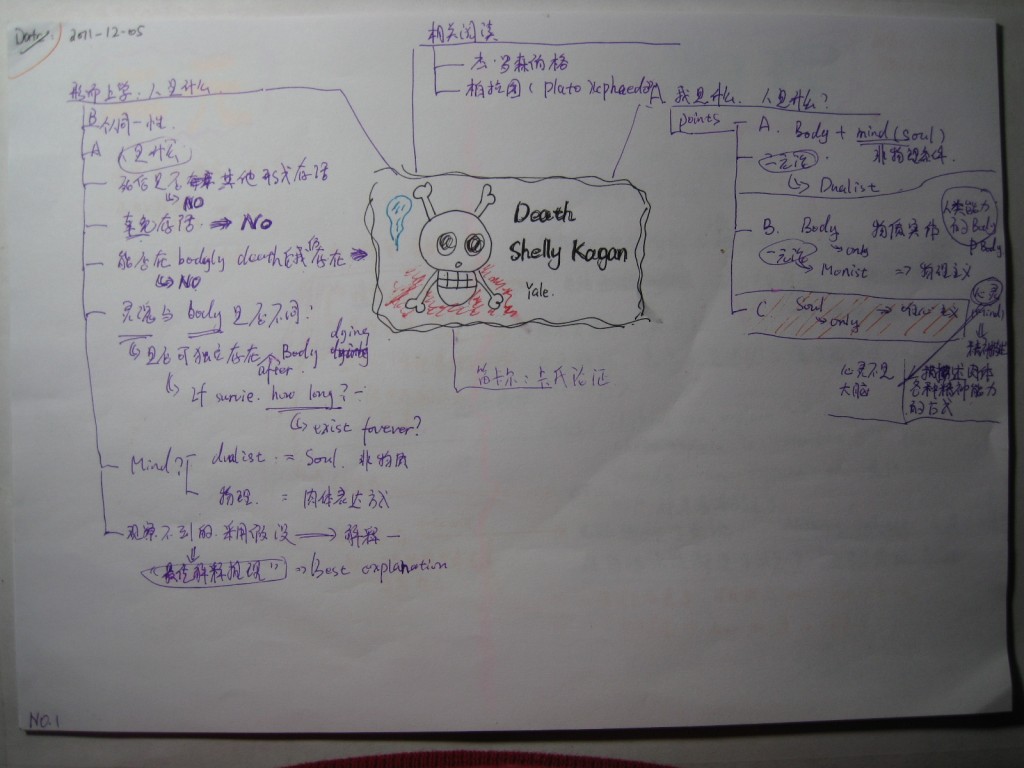 Death
2011-12-05
相关阅读
杰·罗森伯格
柏拉图(plato)《phaedo》
形而上学:人是什么
B 个同一性.
A 人是什么
死后是否 其他形式存活
↳ NO
幸免存活 ⇒ NO
能否在 bodyly death 后我 存在 ⇒
↳ NO
灵魂与 body 是否不同:
↳ 是否可独立存在 Body dying
after.
↳ If survie. how long? -
↳ exist forever?
Mind? dualist. = Soul. 非物质
物理. = 肉体表达方式
观察不到的.采用假设 ⇒ 解释 -
↓
“最佳解释推理” ⇒ Best explanation
Death
Shelly Kagan
Yale.
笛卡尔:
A 我是什么. 人是什么?
points
A. Body + mind (soul)
二元论
↳ Dualist
B. Body 物质实体
↳ only
一元论
↳ Monist ⇒ 物理主义
人类能力
的Body
P Body
C Soul → 唯心主义
→ only
心灵
(mind)
↓
心灵不是
大脑
描述肉体
各种精神能力
的方式
NO.1